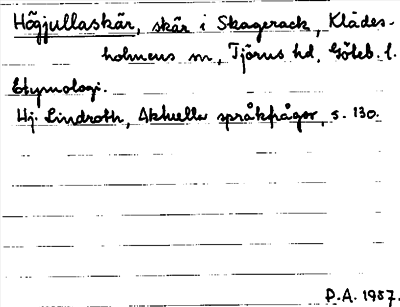 Högjullaskär, skär i Skagerack, Klädes-
holmens sn, Tjörns hd, Göteb. l.
Etymologi.
Hj. Lindroth, Aktuella språkfrågor, s. 130.
D.A. 1987.